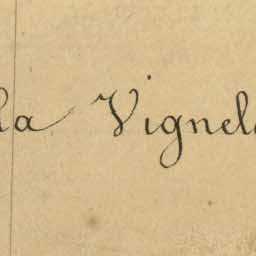 la Vignel